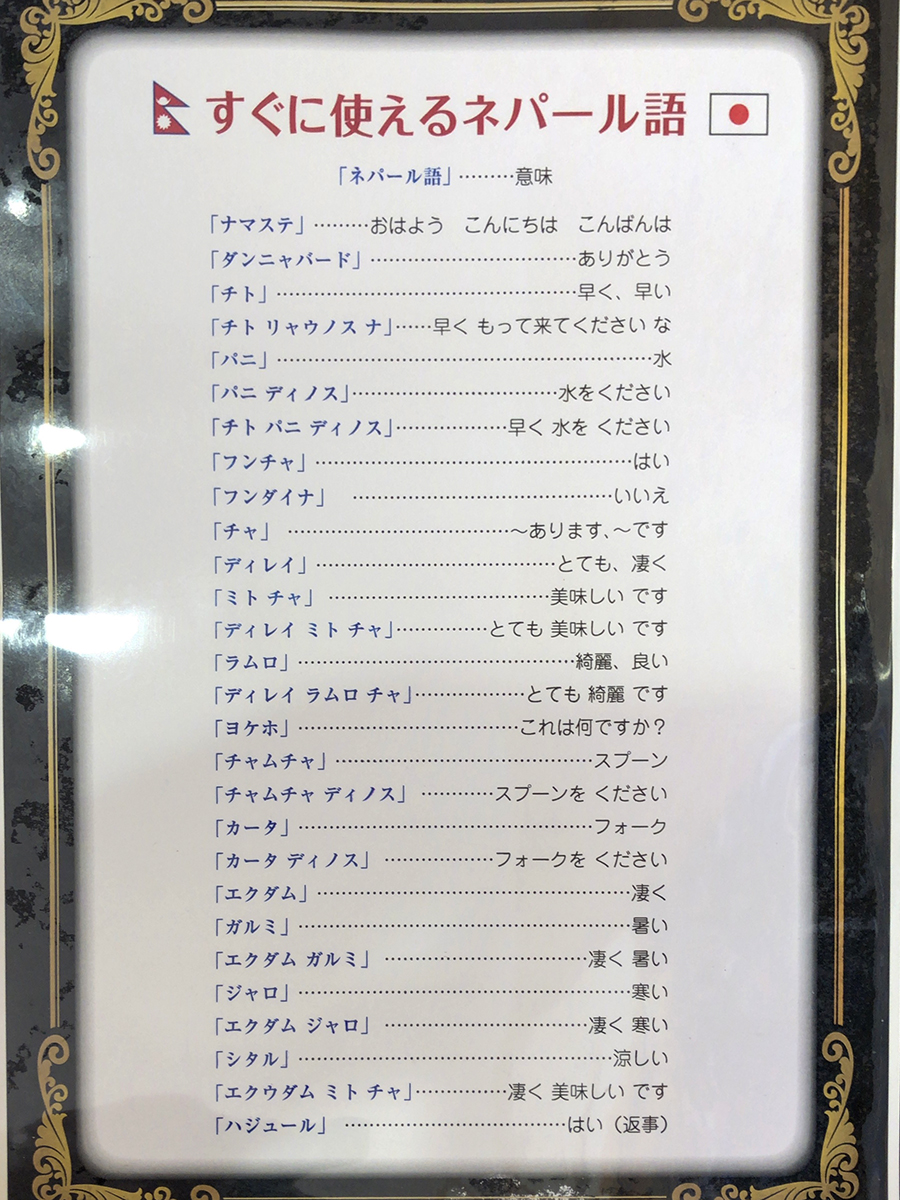 すぐに使えるネパール語
「ネパール語」………意味
「ナマステ」………おはよう　こんにちは　こんばんは
「ダンニャバード」……………………………ありがとう
「チト」…………………………………………早く、早い
「チト リャウノス ナ」……早く もって来てください な
「パニ」……………………………………………………水
「パニ ディノス」……………………………水をください
「チト パニ ディノス」………………早く 水を ください
「フンチャ」……………………………………………はい
「フンダイナ」……………………………………いいえ
「チャ」………………………………～あります、～です
「ディレイ」…………………………………とても、凄く
「ミト チャ」………………………………美味しい です
「ディレイ ミト チャ」……………とても 美味しい です
「ラムロ」………………………………………綺麗、良い
「ディレイ ラムロ チャ」………………とても 綺麗 です
「ヨケホ」………………………………これは何ですか？
「チャムチャ」……………………………………スプーン
「チャムチャ ディノス」…………スプーンを ください
「カータ」…………………………………………フォーク
「カータ ディノス」………………フォークを ください
「エクダム」……………………………………………凄く
「ガルミ」………………………………………………暑い
「エクダム ガルミ」……………………………凄く 暑い
「ジャロ」………………………………………………寒い
「エクダム ジャロ」……………………………凄く 寒い
「シタル」……………………………………………涼しい
「エクウダム ミト チャ」……………凄く 美味しい です
「ハジュール」………………………………はい（返事）